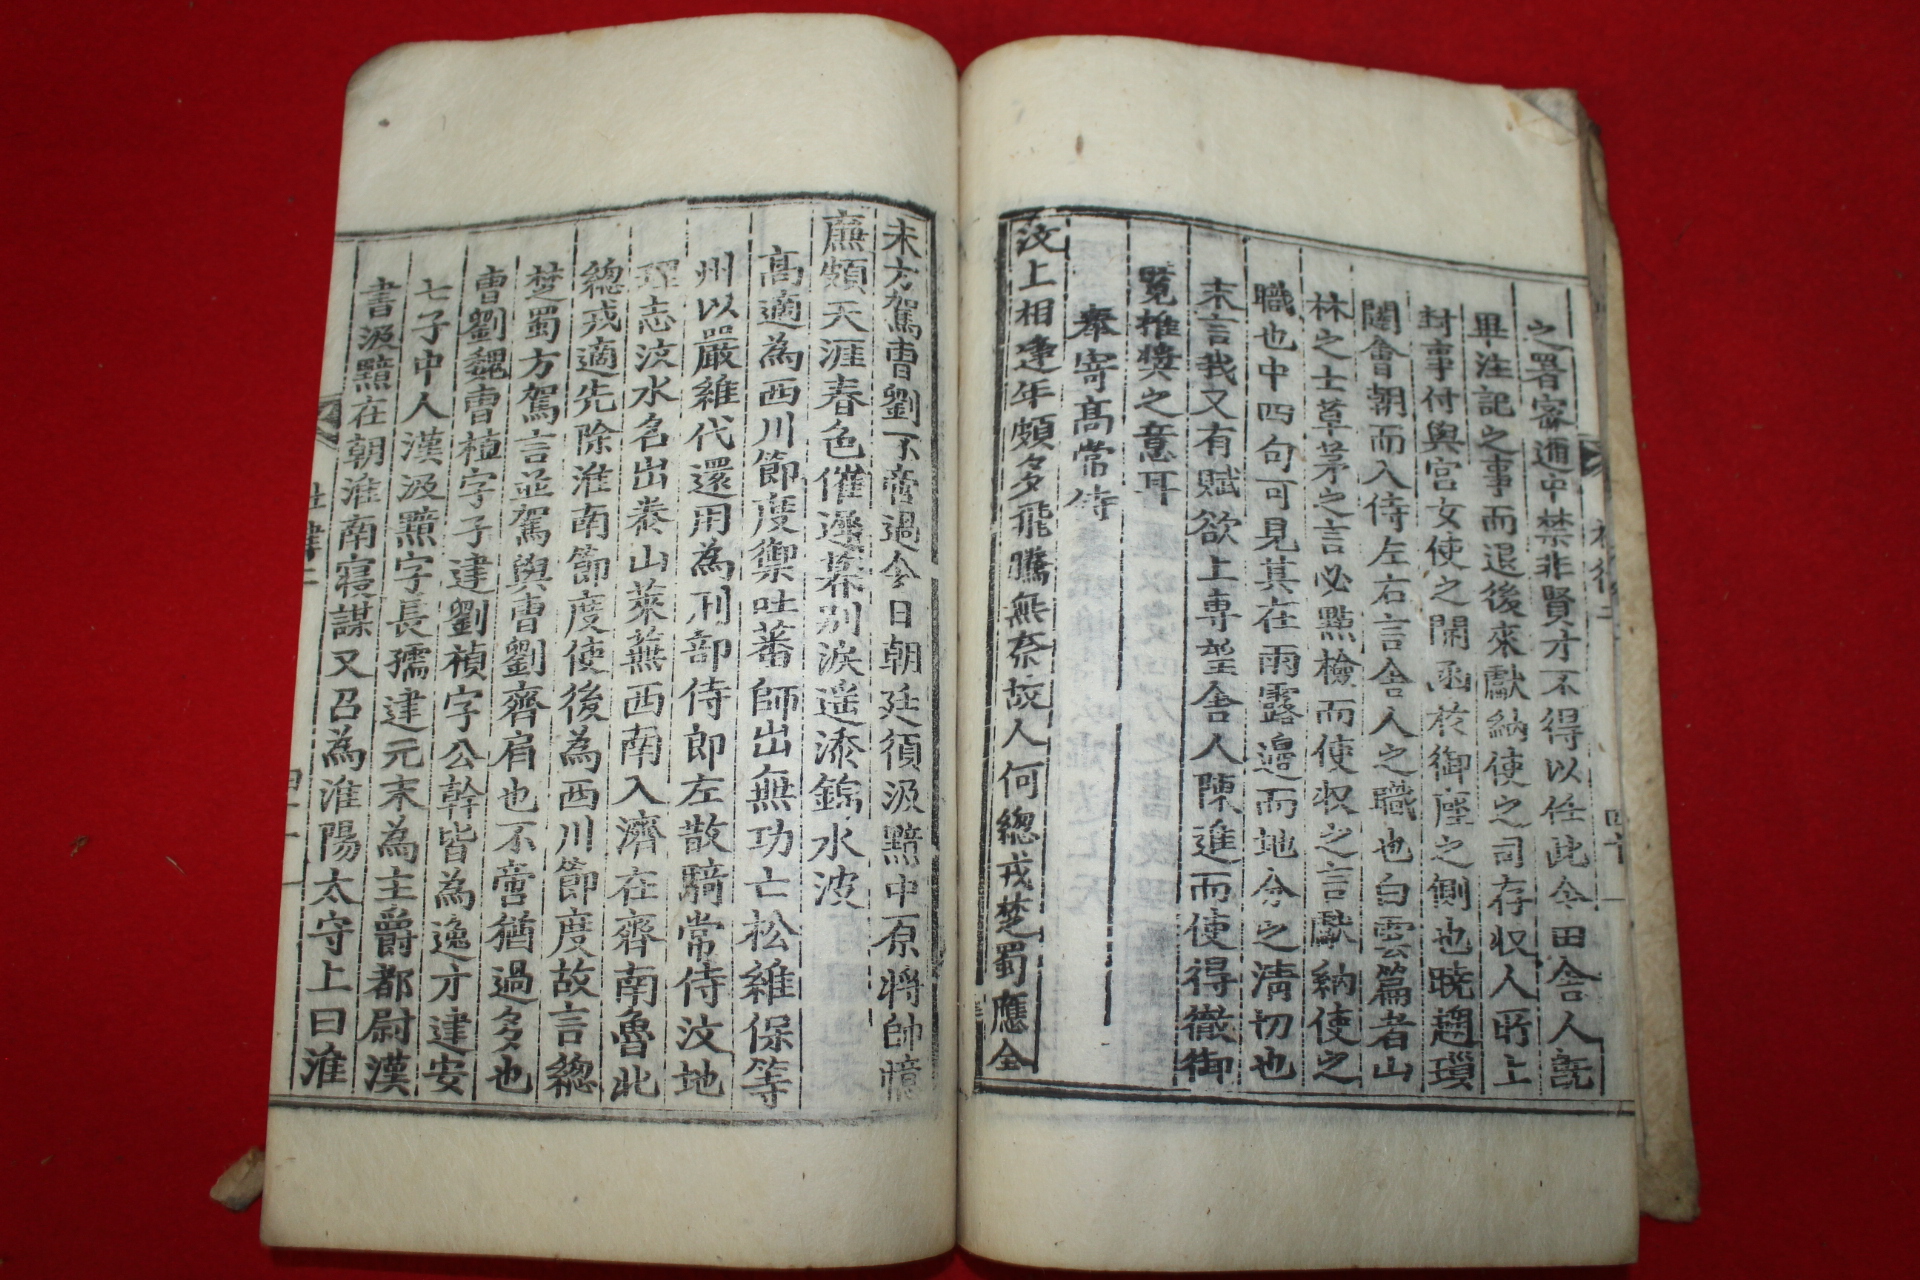 之署密通中禁非賢才不得以任此今田舍人旣
畢注記之事而退後來獻納使之司存收人所上
封事付與宮女使之開函於御座之側也曉趨瑣
闥會朝而入侍左右言舍人之職也白雲篇者山
林之士草茅之言必點檢而使収之言獻納使之
職也中四句可見其在雨露邊而地分之淸切也
末言我又有賦欲上專望舍人陳進而使得徹御
覽推奬之意耳
奉寄高常侍
汶上相逢年頗多飛騰無奈故人何總戎楚蜀應全
未方駕曹劉不啻過今日朝廷須汲黯中原將帥憶
廉頗天涯春色催遲暮別淚遥添錦水波
高適為西川節度禦吐蕃師出無功亡松維保等
州以嚴維代還用為刑部侍郞左散騎常侍汶地
理志汶水名出泰山萊蕪西南入濟在齊南魯北
總戎適先除淮南節度使後為西川節度故言總
楚蜀方駕言並駕與曹劉齊肩也不啻猶過多也
曹劉魏曹植字子建劉楨字公幹皆為逸才建安
七子中人漢汲黯字長孺建元末為主爵都尉漢
書汲黯在朝淮南寢謀又召為淮陽太守上曰淮
杜律二
四十一
四十